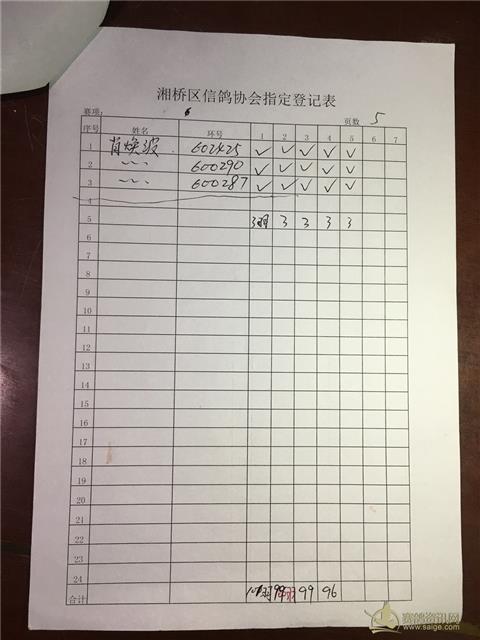 湘桥区信鸽协会指定登记表
赛项: 6 页数 5
序号 姓名 环号 1 2 3 4 5 6 7
1 肖焕波 602425 ✓ ✓ ✓ ✓ ✓
2 〃 600290 ✓ ✓ ✓ ✓ ✓
3 〃 600287 ✓ ✓ ✓ ✓ ✓
4
5 3羽 3 3 3 3
6
7
8
9
10
11
12
13
14
15
16
17
18
19
20
21
22
23
24
合计 99 96
赛鸽资讯网
www.saige.com